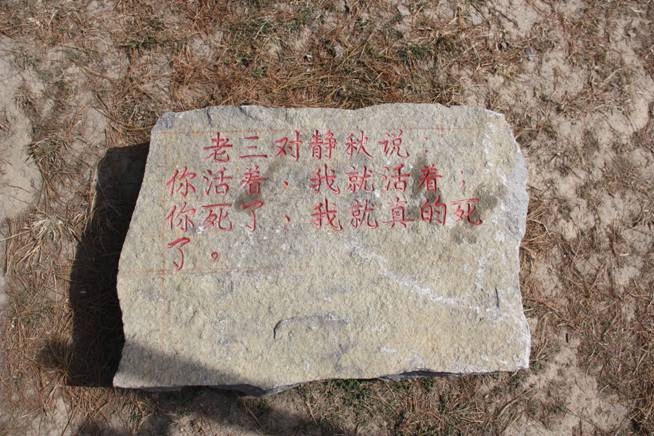 老三对静秋说：
你活着、我就活着；
你死了、我就真的死
了。